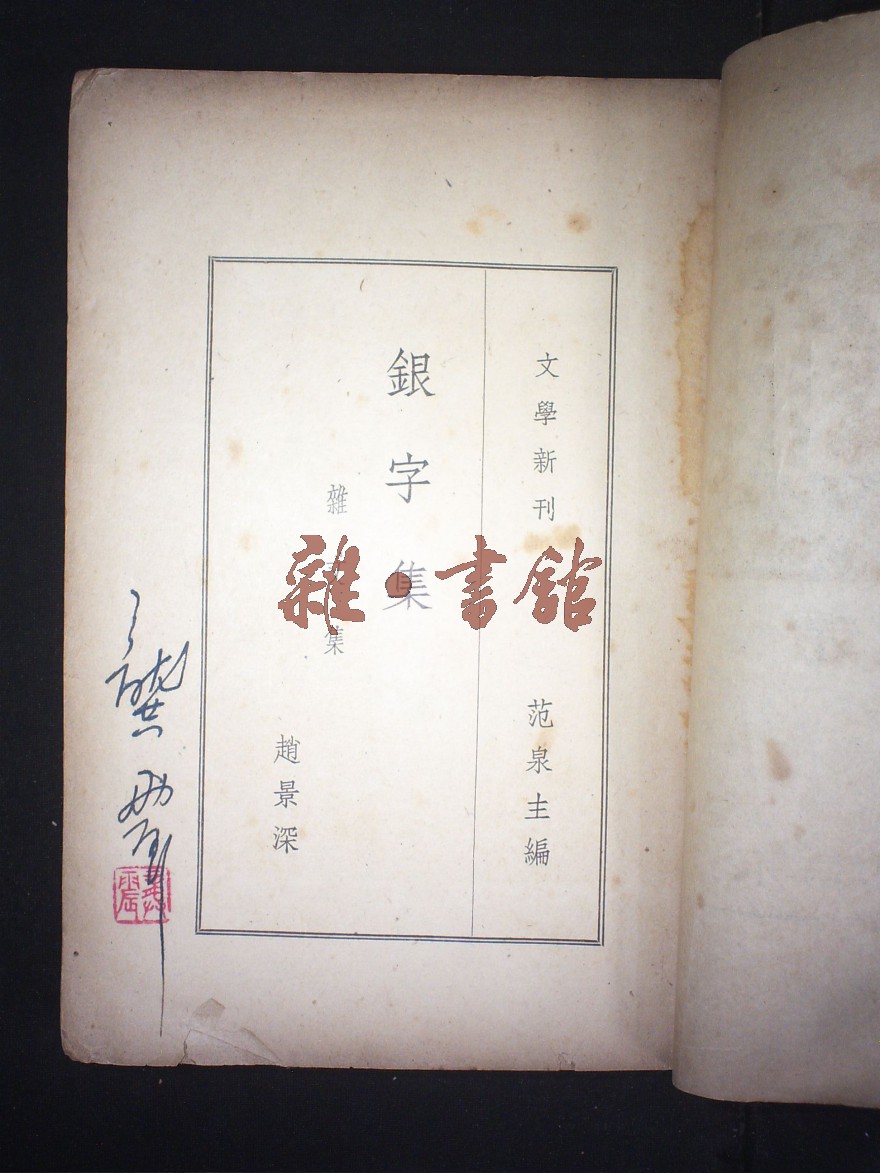 文學新刊
范泉主編
銀字集
雜
集
趙景深
雜·書館